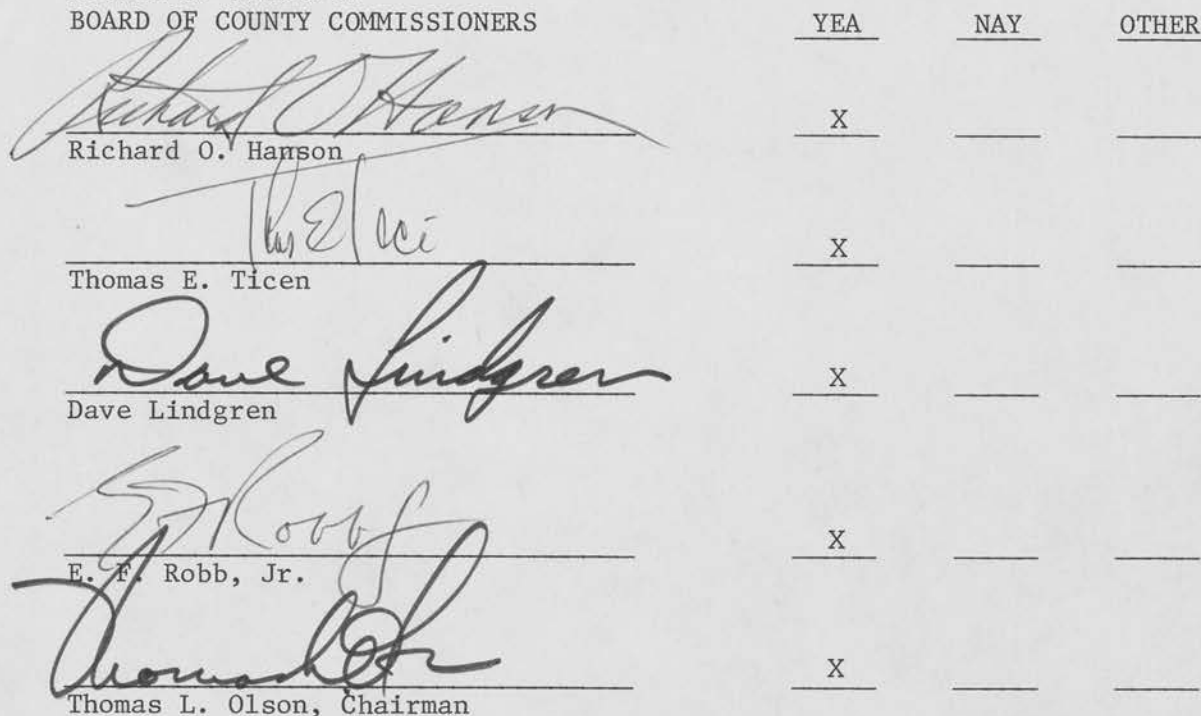 BOARD OF COUNTY COMMISSIONERS YEA NAY OTHER
Richard O Hanson X
Richard O. Hanson
Thos E Tici X
Thomas E. Ticen
Dave Lindgren X
Dave Lindgren
E F Robb Jr X
E. F. Robb, Jr.
Thomas L Olson X
Thomas L. Olson, Chairman